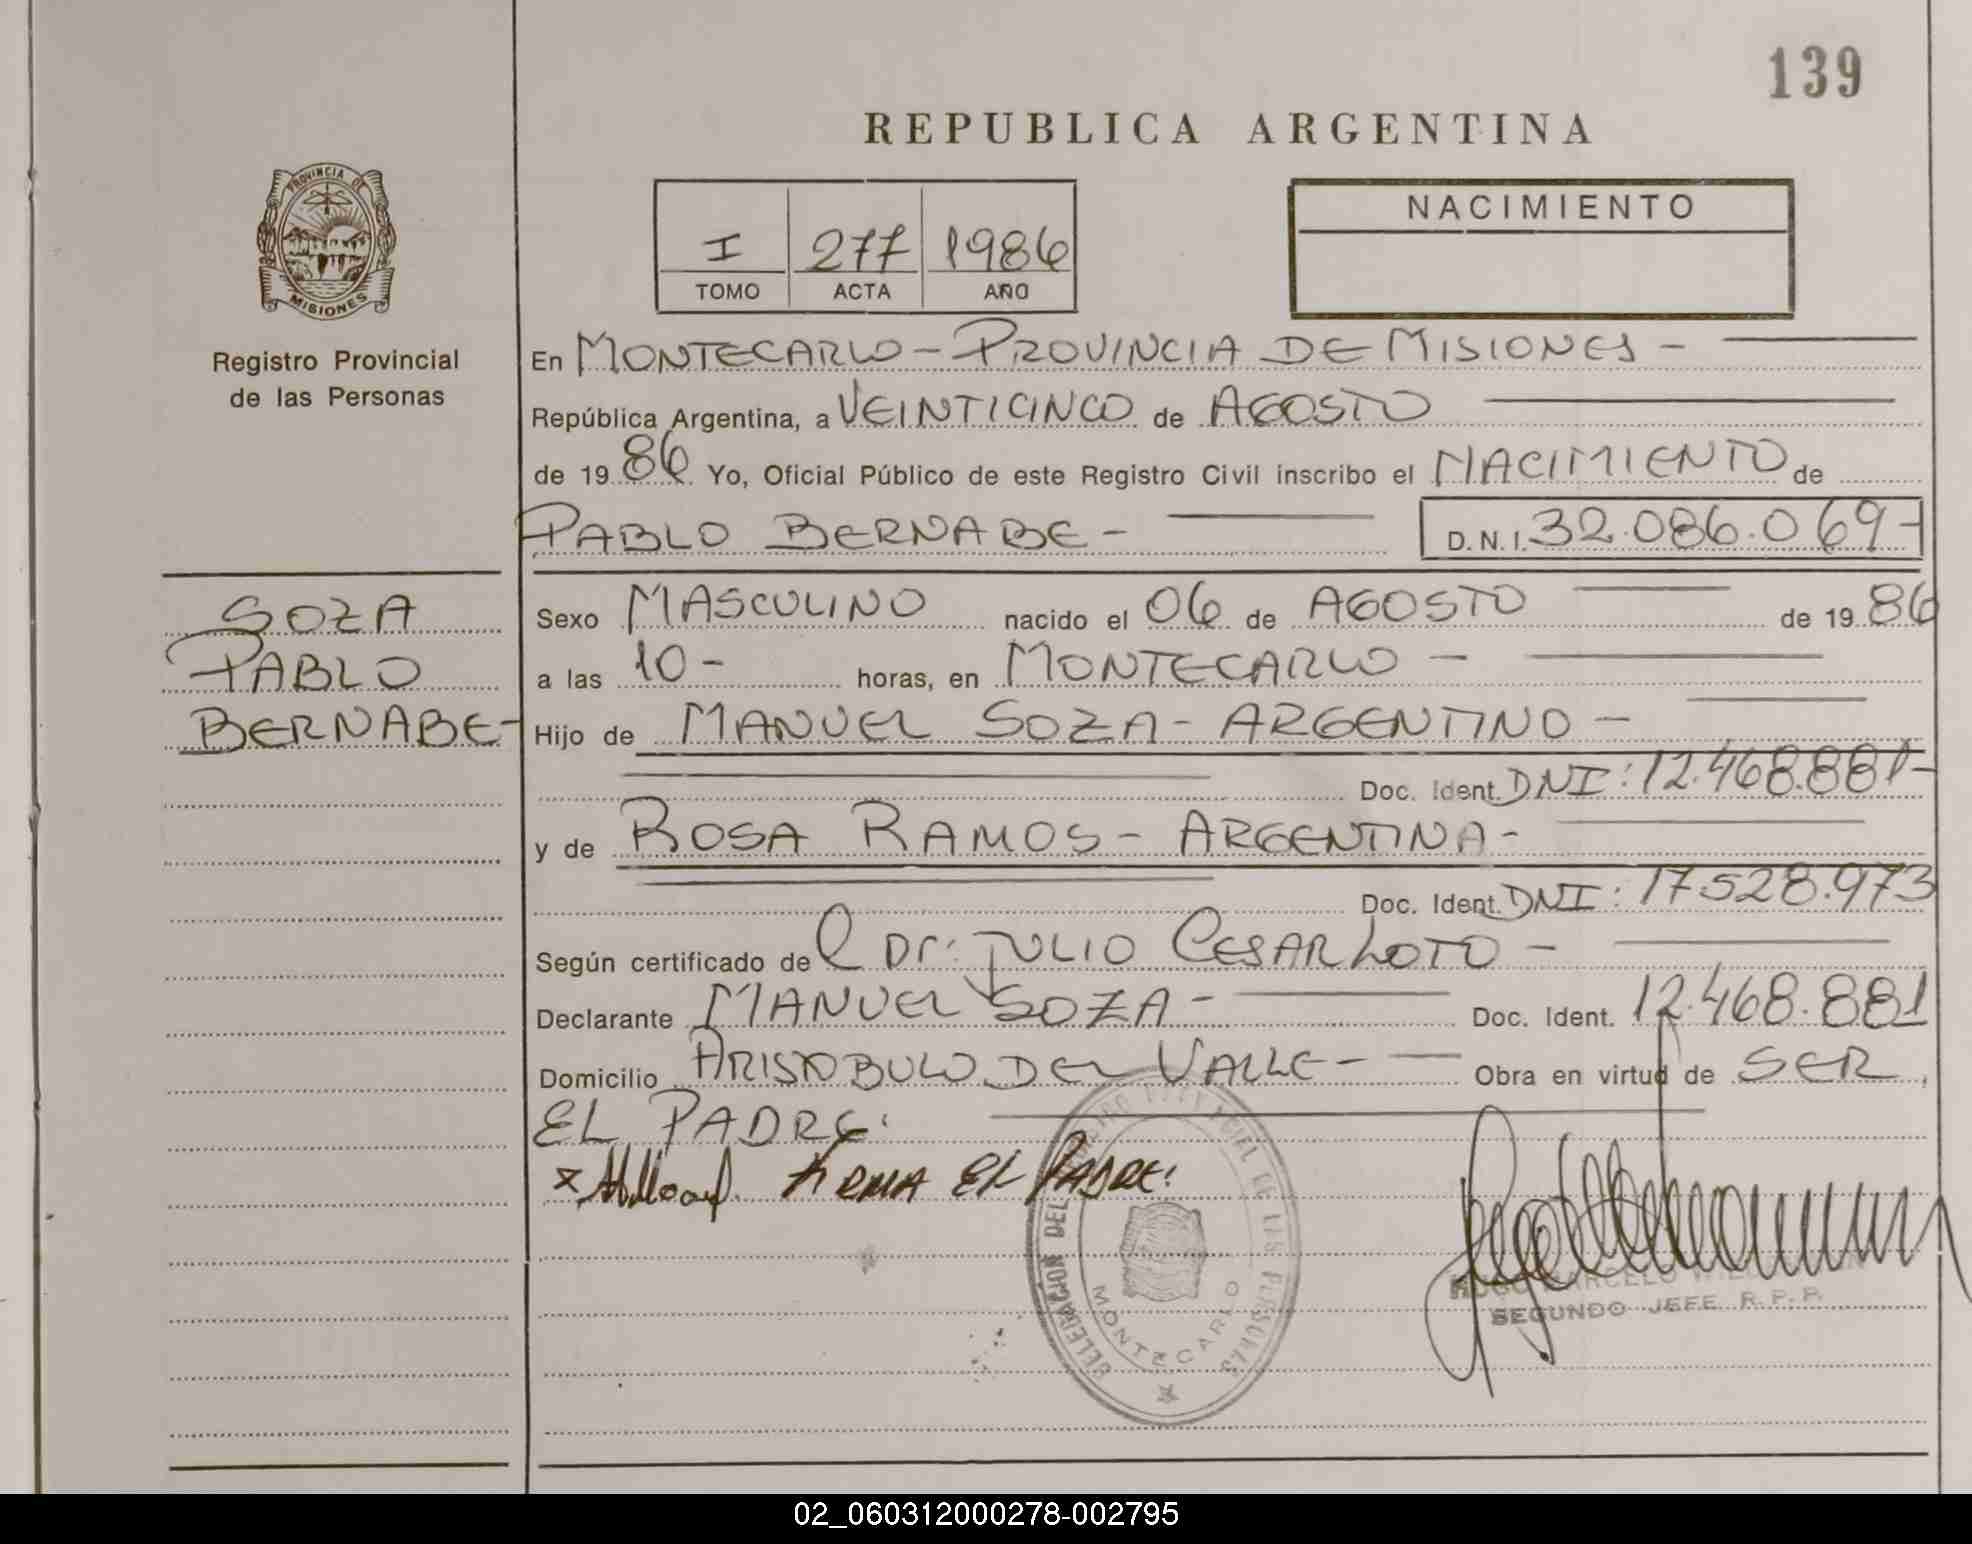 139
REPUBLICA ARGENTINA
PROVINCIA DE
MISIONES
Registro Provincial
de las Personas
I 277 1986
TOMO ACTA AÑO
NACIMIENTO
En MONTECARLO - PROVINCIA DE MISIONES -
República Argentina, a VEINTICINCO de AGOSTO
de 1986 Yo, Oficial Público de este Registro Civil inscribo el NACIMIENTO de
PABLO BERNABE - D.N.I. 32.086.069-
SOZA
PABLO
BERNABE-
Sexo MASCULINO nacido el 06 de AGOSTO de 1986
a las 10- horas, en MONTECARLO -
Hijo de MANUEL SOZA - ARGENTINO -
Doc. Ident. DNI: 12.468.881-
y de ROSA RAMOS - ARGENTINA -
Doc. Ident. DNI: 17.528.973
Según certificado de Dr. JULIO CESAR LOTO -
Declarante MANUEL SOZA - Doc. Ident. 12.468.881
Domicilio ARISTOBULO DEL VALLE - Obra en virtud de SER
EL PADRE.
x FIRMA EL PADRE.
DELEGACION DEL REGISTRO PROVINCIAL DE LAS PERSONAS
MONTECARLO
HUGO MARCELO
SEGUNDO JEFE R.P.P.
02_060312000278-002795